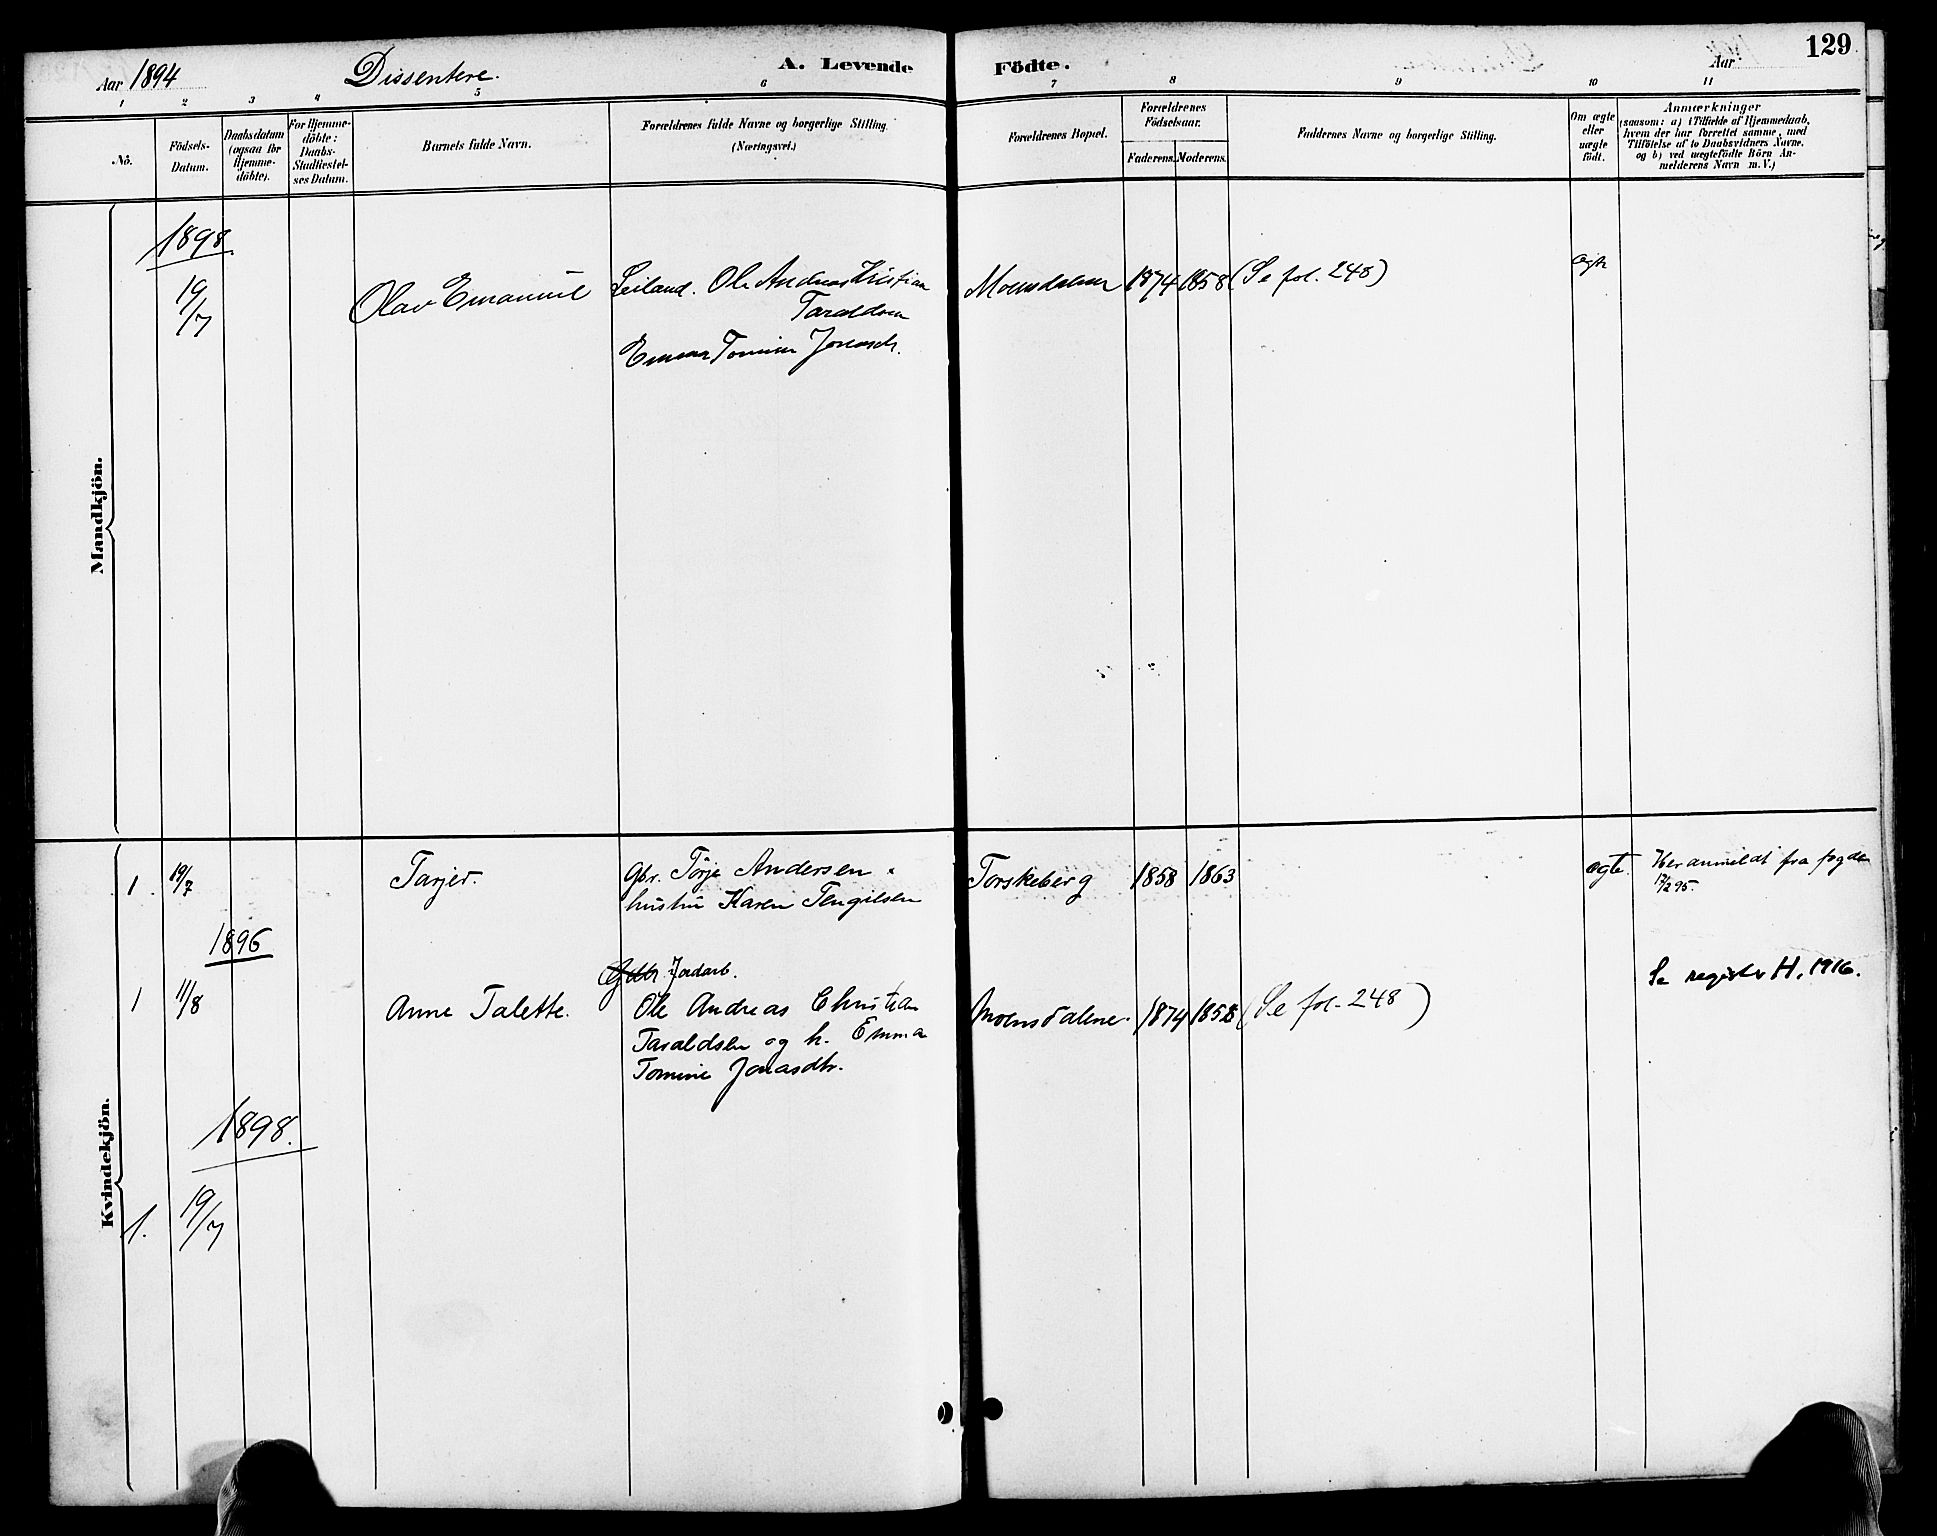 Aar 1894 Dissentere. A. Levende Födte. Aar 129
1 2 3 4 5 6 7 8 9 10 11
Nö.
Födsels-
Datum.
Daabsdatum
(ogsaa for
Hjemme-
döbte).
For Hjemme-
döbte:
Daabs-
Stadfæstel-
ses Datum.
Barnets fulde Navn.
Forældrenes fulde Navne og borgerlige Stilling.
(Næringsvei.)
Forældrenes Bopæl.
Forældrenes
Födselsaar.
Faderens. Moderens.
Faddernes Navne og borgerlige Stilling.
Om ægte
eller
uægte
födt.
Anmærkninger
(saasom: a) i Tilfælde af Hjemmedaab,
hvem der har forrettet samme, med
Tilföielse af to Daabsvidners Navne,
og b) ved uægtefödte Börn An-
melderens Navn m. V.)
Mandkjön.
1898
19/7 Olav Emanuel Leiland. Ole Andreas Kristian Moensdalene 1874 1858 (Se fol. 248) ægte
Taraldsen
Emma Tomine Jonasdr.
Kvindekjön.
1. 19/7 Tarjer. Gbr. Törje Andersen Torskeberg 1858 1863 ægte. Her anmeldt fra fogden
hustru Karen Tengilsen 95.
1896
Gdbr. Jordarb. Se register H. 1916.
1 11/8 Anne Talette. Ole Andreas Christian Moensdalene. 1874 1858 (Se fol. 248)
Taraldsen og h. Emma
Tomine Jonasdtr.
1898.
1. 19/7